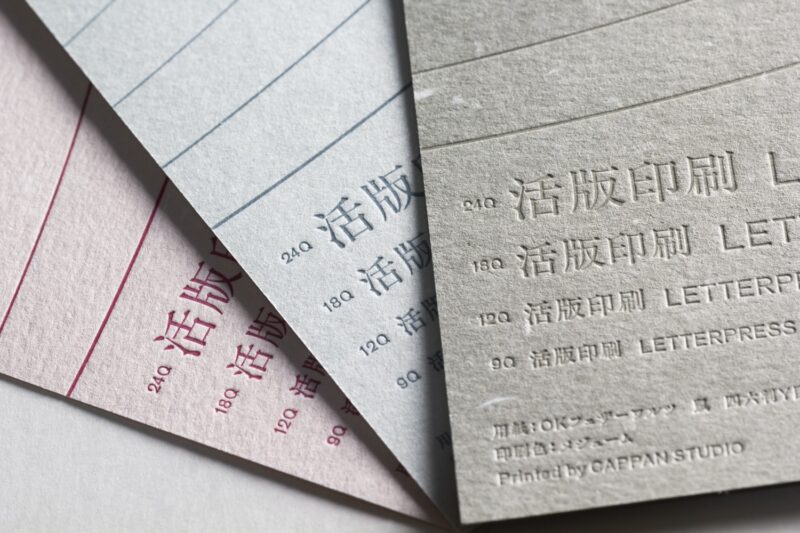 24Q 活版
18Q 活版
12Q 活版
9Q 活
24Q 活版
18Q 活版
12Q 活版
9Q
24Q 活版印刷 L
18Q 活版印刷 LET
12Q 活版印刷 LETTERP
9Q 活版印刷 LETTERPRESS
用紙:OKフェザーワルツ 四六判Y
印刷色:メジューム
Printed by CAPPAN STUDIO